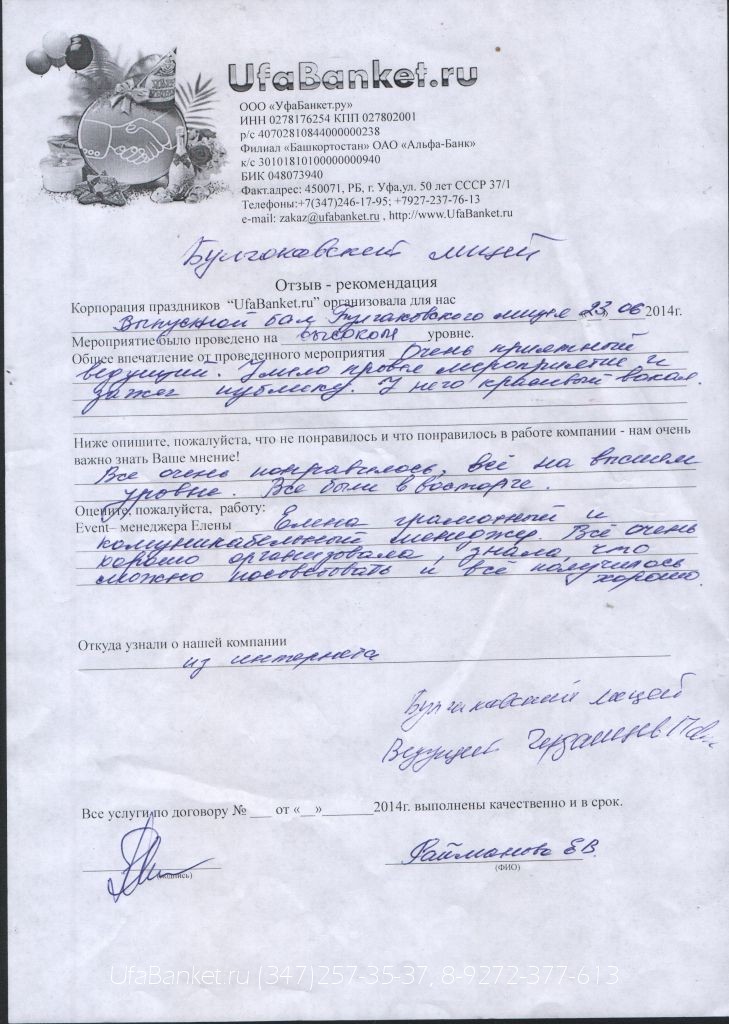 UfaBanket.ru
ООО «УфаБанкет.ру»
ИНН 0278176254 КПП 027802001
р/с 40702810844000000238
Филиал «Башкортостан» ОАО «Альфа-Банк»
к/с 30101810100000000940
БИК 048073940
Факт.адрес: 450071, РБ, г. Уфа,ул. 50 лет СССР 37/1
Телефоны:+7(347)246-17-95; +7927-237-76-13
e-mail: zakaz@ufabanket.ru , http://www.UfaBanket.ru
Булгаковский лицей
Отзыв - рекомендация
Корпорация праздников “UfaBanket.ru” организовала для нас
Выпускной бал Булгаковского лицея 23. 06 2014г.
Мероприятие было проведено на высоком уровне.
Общее впечатление от проведенного мероприятия Очень приятный
ведущий. Умело провел мероприятие и
зажег публику. У него красивый вокал.
Ниже опишите, пожалуйста, что не понравилось и что понравилось в работе компании - нам очень
важно знать Ваше мнение!
Все очень понравилось, всё на высшем
уровне. Все были в восторге.
Оцените, пожалуйста, работу:
Event– менеджера Елены Елена грамотный и
коммуникабельный менеджер. Всё очень
хорошо организовала, знала, что
можно посоветовать и всё получилось
хорошо.
Откуда узнали о нашей компании
из интернета
Булгаковский лицей
Ведущий
Все услуги по договору № ___ от «__»_______2014г. выполнены качественно и в срок.
Файманова Е.В.
(подпись) (ФИО)
UfaBanket.ru (347)257-35-37, 8-9272-377-613